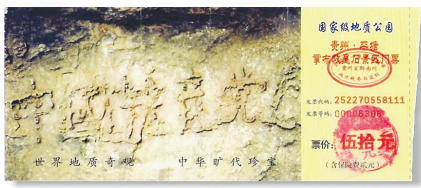 世界地质奇观 中华旷代珍宝
国家级地质公园
贵州·平塘
掌布 景区门票
贵州省黔南州
发票代码: 252270558111
发票号码: 00006306
票价: 伍拾元
(含保险费贰元)